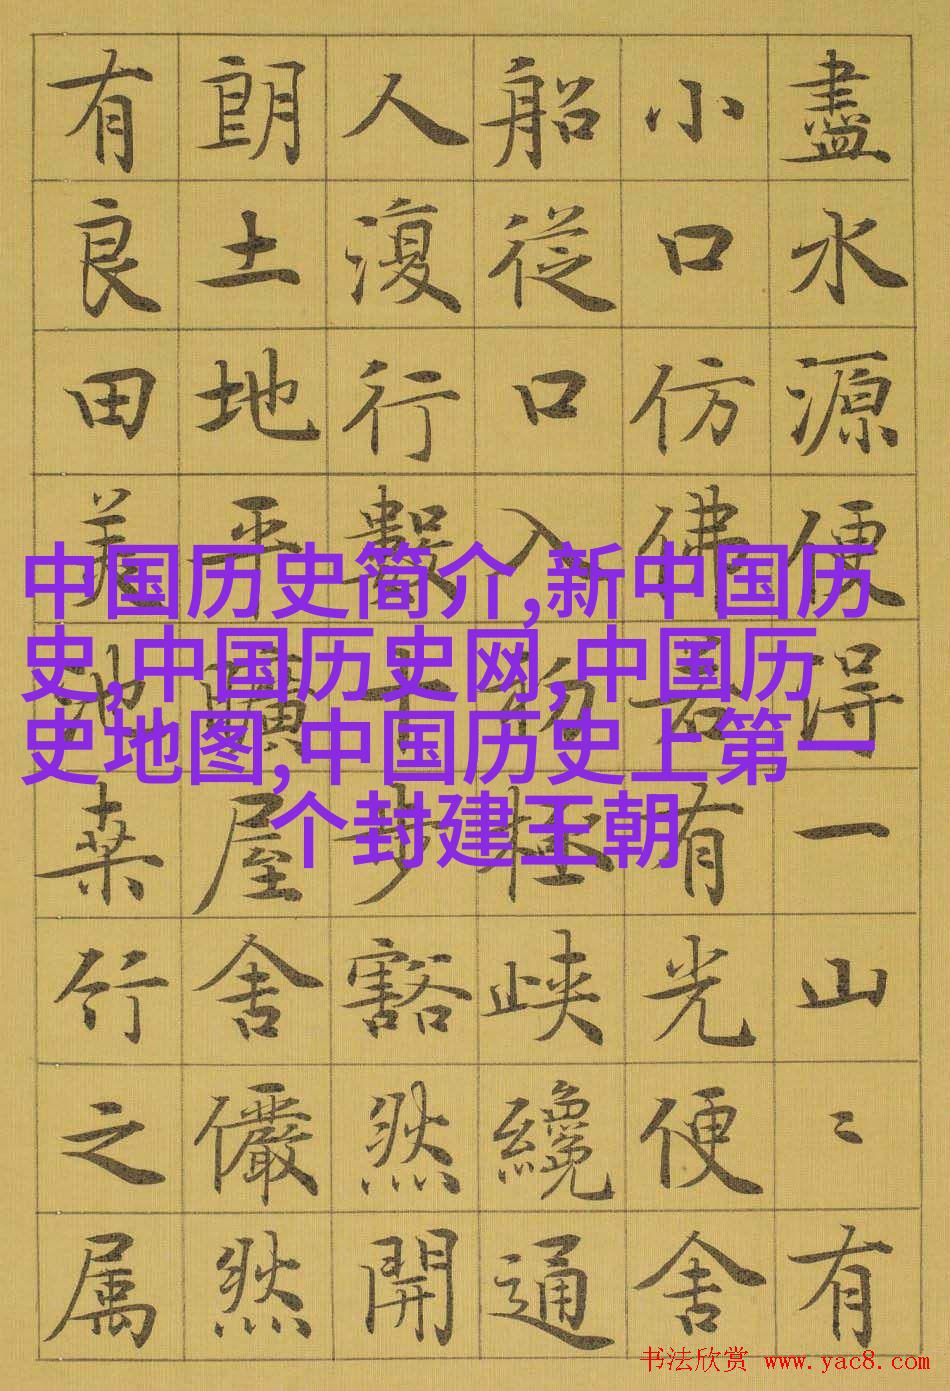 盡水源便得一山〻有
小口仿佛若有光便舍
船從口入初極峽纔通
人復行數十步豁然開
朗土地平曠屋舍儼然
有良田美池桑竹之属
中国历史简介,新中国历
史,中国历史网,中国历
史地图,中国历史上第一
个封建王朝
书法欣赏 www.yac8.com